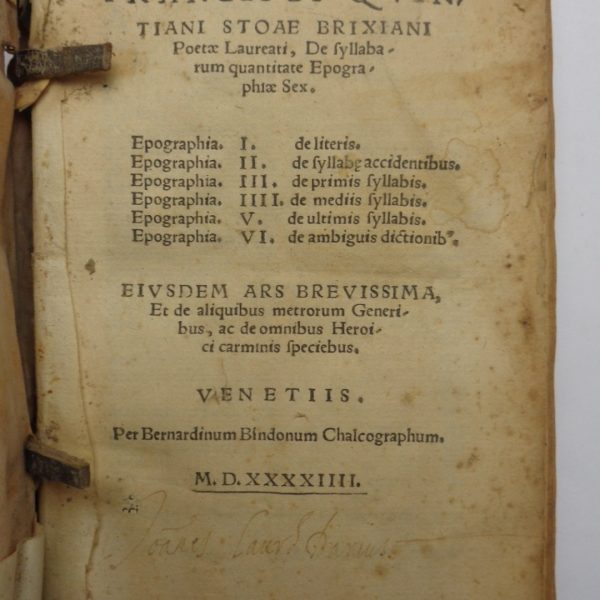 TIANI STOAE BRIXIANI
Poetæ Laureati, De ſyllaba-
rum quantitate Epogra-
phiæ Sex.
Epographia. I. de literis.
Epographia. II. de ſyllabę accidentibus.
Epographia. III. de primis ſyllabis.
Epographia. IIII. de mediis ſyllabis.
Epographia. V. de ultimis ſyllabis.
Epographia. VI. de ambiguis dictionib⁹.
EIVSDEM ARS BREVISSIMA,
Et de aliquibus metrorum Generi-
bus, ac de omnibus Heroi-
ci carminis ſpeciebus.
VENETIIS.
Per Bernardinum Bindonum Chalcographum.
M. D. XXXXIIII.